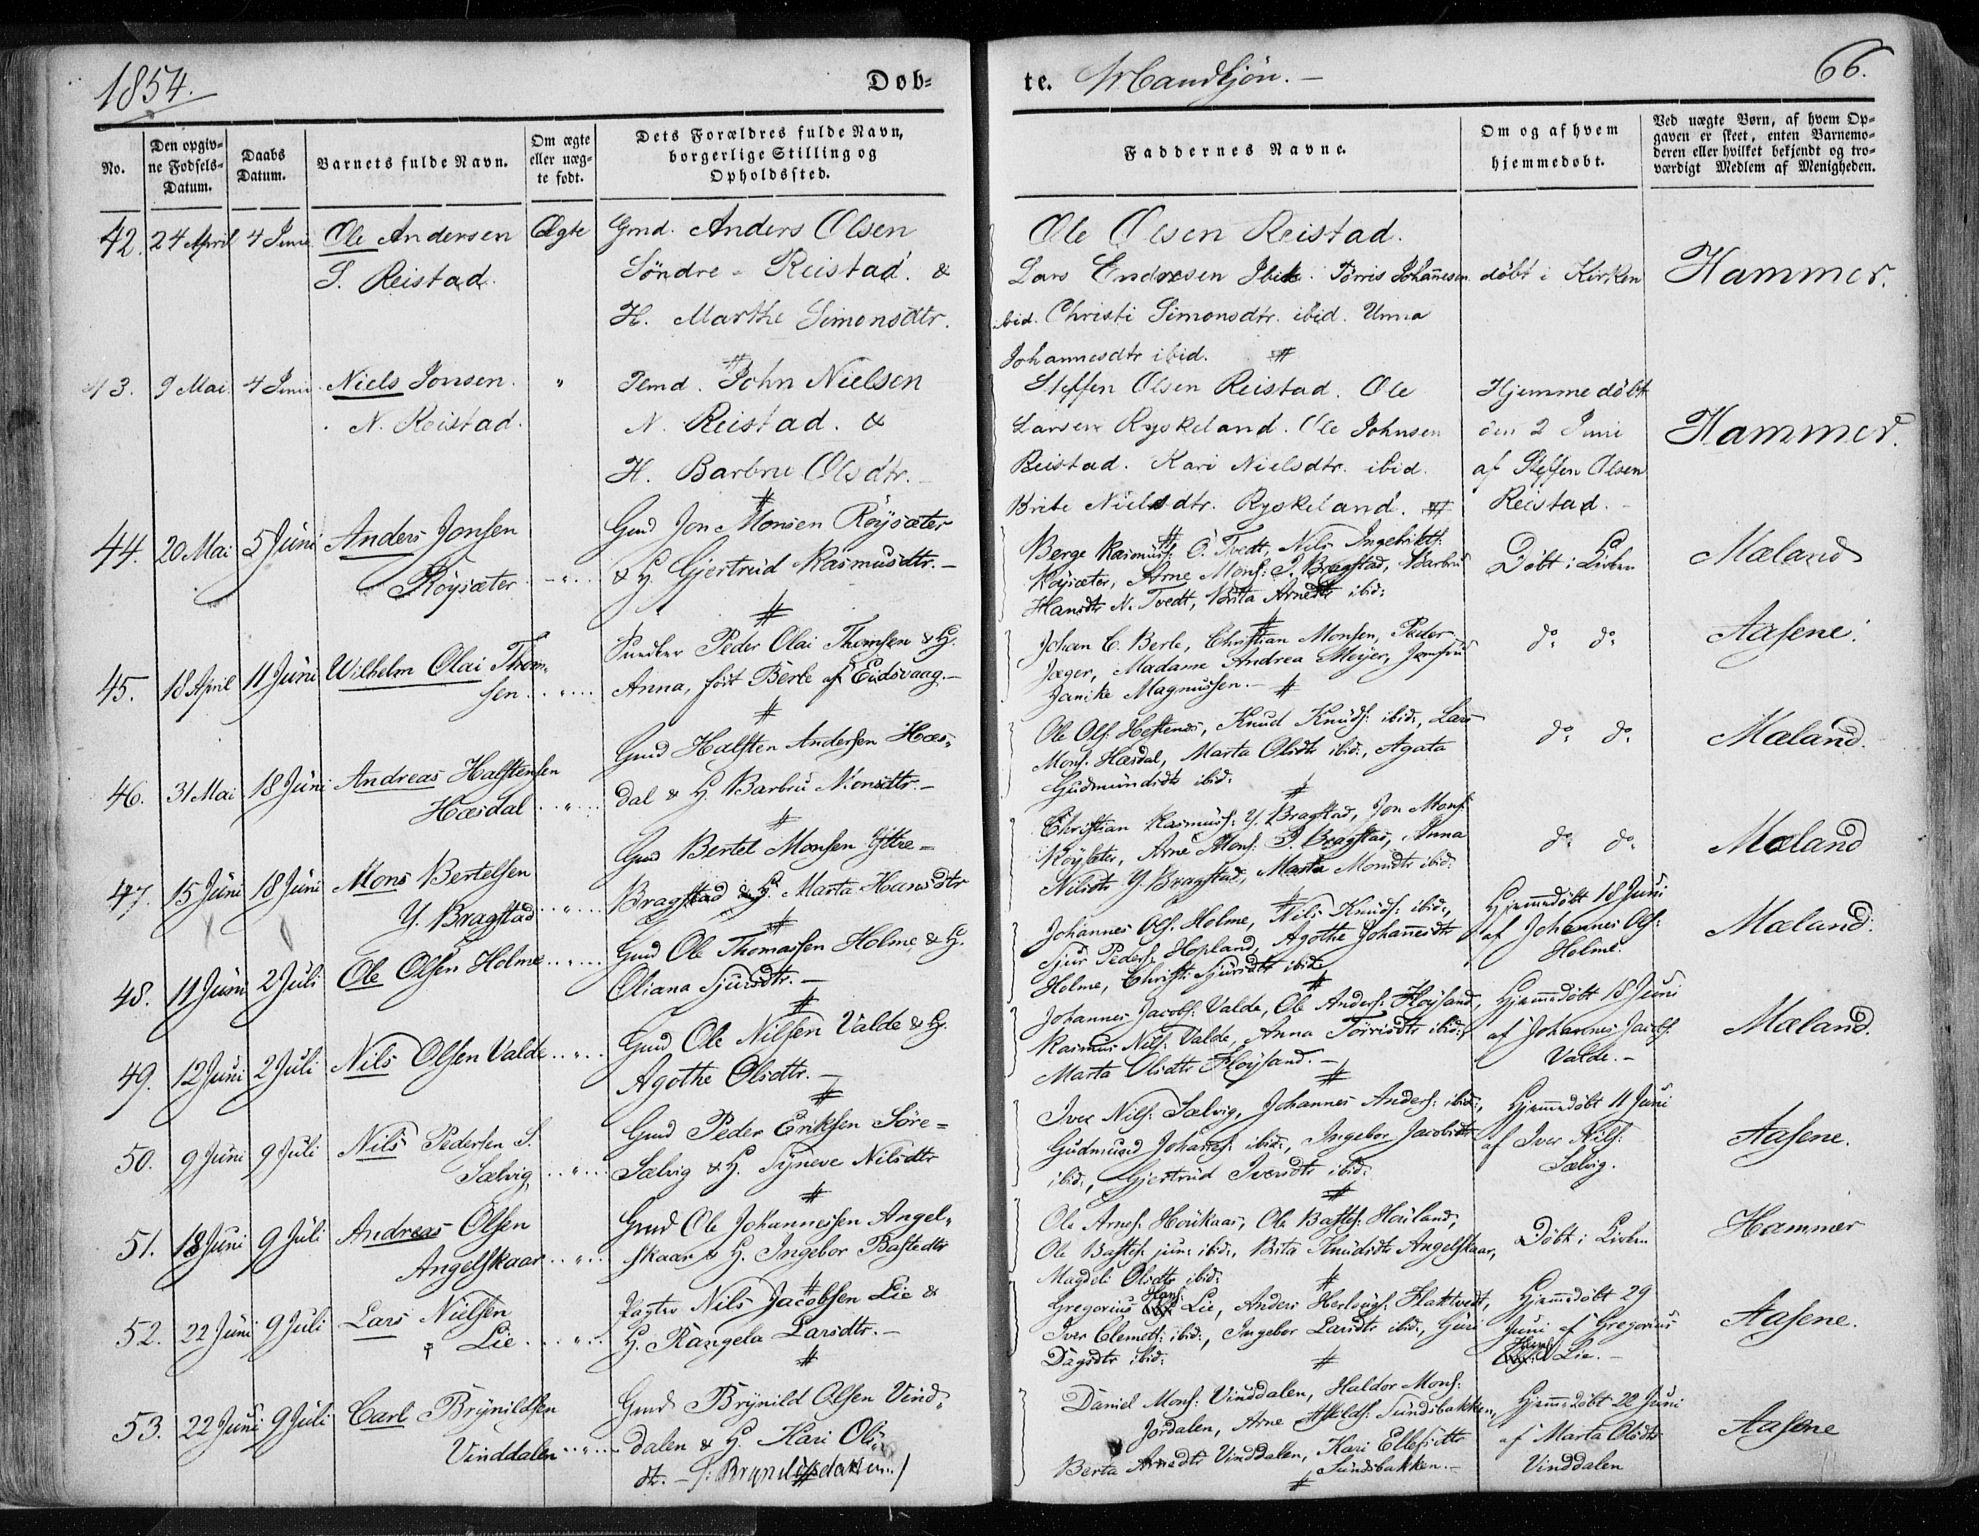 1854.
Døb-
te. Mandkjøn. -
66.
No.
Den opgiv-
ne Fødsels-
Datum.
Daabs
Datum.
Barnets fulde Navn.
Om ægte
eller uæg-
te født.
Dets Forældres fulde Navn,
borgerlige Stilling og
Opholdssted.
Faddernes Navne.
Om og af hvem
hjemmedøbt.
Ved uægte Børn, af hvem Op-
gaven er skeet, enten Barnemo-
deren eller hvilket bekjendt og tro-
værdigt Medlem af Menigheden.
42. 24 April 4 Juni Ole Andersen Ægte Gmd. Anders Olsen Ole Olsen Reistad.
S. Reistad. Söndre - Reistad. & Lars Endresen Ibid. Törris Johan̄esen döbt i Kirken Hammer.
H. Marthe Simonsdtr. ibid. Christi Simonsdtr. ibid. Unna
Johannesdtr ibid. #
43. 9 Mai 4 Juni Niels Jonsen. " John Nielsen Steffen Olsen Reistad. Ole Hjemmedöbt
N. Reistad. N. Reistad. & Larsen Ryskeland. Ole Johnsen den 2 Juni Hammer.
H. Barbru Olsdtr. Reistad. Kari Nielsdtr. ibid. af Steffen Olsen
Brite Nielsdtr. Ryskeland. # Reistad. -
44. 20 Mai 5 Juni Anders Jonsen Gmd Jon Monsen Röysæter Berge Rasmus: Ö. Tvedt, Nils Ingebrikts: Döbt i Kirken Mæland
Röysæter - " - & H. Gjertrud Rasmusdtr. - Röysæter, Arne Mons: I. Bragstad, Barbru
# Hansdtr N. Tvedt, Brita Arnedtr ibid:
45. 18 April 11 Juni Wilhelm Olai Thom- Peder Olai Thomsen & H. Johan C. Berle, Christian Monsen, Peder do do Aasene.
sen " Anna, föit Berle af Eidsvaag. - Jæger, Madame Andrea Meijer, Jomfru
# Janike Magnussen. - #
46. 31 Mai 18 Juni Andreas Halstensen Gmd Halsten Andersen Hæs- Ole Ols: Hestenæs, Knud Knuds: ibid:, Lars do do Mæland.
Hæsdal " dal & H. Barbru Monsdtr. - Mons: Hæsdal, Marta Olsdtr ibid:, Agata
# Gudmundsdtr ibid: #
47. 15 Juni 18 Juni Mons Bertelsen Gmd Bertel Monsen Yttre- Christian Rasmus: Y. Bragstad, Jon Mons: do do Mæland
Y. Bragstad " Bragstad & H. Marta Hansdtr Röysæter, Arne Mons: I. Bragstad, Anna
# Nilsdtr Y. Bragstad, Marta Monsdtr ibid:
48. 11 Juni 2 Juli Ole Olsen Holme " Gmd Ole Thomassen Holme, & H. Johannes Ols: Holme, Nils Knuds: ibid:, Hjemmedöbt 18 Juni Mæland.
Oliana Sjursdtr. - Sjur Peders: Hopland, Agothe Johan̄esdtr af Johannes Ols:
# Holme, Christi Sjursdtr ibid: # Holme.
49. 12 Juni 2 Juli Nils Olsen Valde " Gmd Ole Nilsen Valde & H. Johannes Jacobs: Valde, Ole Anders: Flöysand, Hjemmedöbt 18 Juni Mæland.
Agothe Olsdtr. - Rasmus Nils: Valde, Anna Törrisdtr ibid:, af Johannes Jacobs:
# Marta Olsdtr Flöysand. - # Valde. -
50. 9 Juni 9 Juli Nils Pedersen S. Gmd Peder Eriksen Söre- Iver Nils: Sælvig, Johannes Anders: ibid:, Hjemmedöbt 11 Juni Aasene.
Sælvig, " Sælvig & H. Syneve Nilsdtr Gudmund Johan̄es: ibid:, Ingebor Jacobsdtr af Iver Nils:
# ibid:, Gjertrud Iversdtr ibid: # Sælvig.
51. 18 Juni 9 Juli Andreas Olsen Gmd Ole Johannessen Angel- Ole Arnes: Hoükaas, Ole Bastes: Hoüland, Döbt i Kirken Hammer
Angelskaar " skaar & H. Ingebor Bastedtr Ole Bastes: jun: ibid:, Brita Knudsdtr Angelskaar,
# Magdeli Olsdtr ibid: #
52. 22 Juni 9 Juli Lars Nielsen Nils Jacobsen Lie & Gregorius Hans: Lie, Anders Herlougs: Flaktvedt, Hjemmedöbt 29 Aasene.
Lie " H. Rangela Larsdtr. - Iver Clemets: ibid:, Ingebor Larsdtr ibid:, Guri Juni af Gregorius
# Dagsdtr ibid: # Hans: Lie. -
53. 22 Juni 9 Juli Carl Brynildsen Gmd Brynild Olsen Vind- Daniel Mons: Vinddalen, Haldor Mons: Hjemmedöbt 22 Juni Aasene
Vinddalen " dalen & H. Kari Ols- Jordalen, Arne Askelds: Sundsbakken, af Marta Olsdtr
dtr. - Berta Arnedtr Vinddalen, Kari Ellefsdtr Vinddalen
Sundsbakken. - #